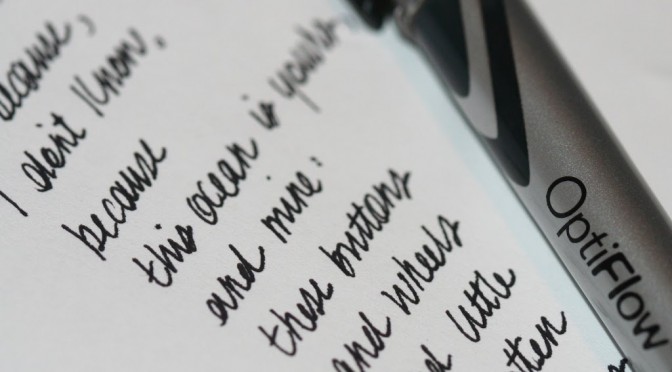 because,
I don't know,
because
this ocean is yours
and mine:
these buttons
and wheels
little
OptiFlow